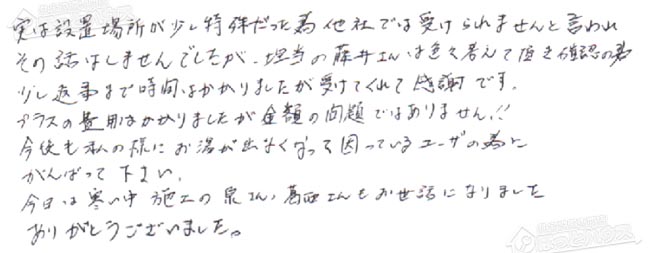 実は設置場所が少し特殊だった為他社では受けられませんと言われ
その話はしませんでしたが、担当の藤井さんは色々考えて頂き確認の為
少し返事まで時間はかかりましたが受けてくれて感謝です。
プラスの費用はかかりましたが金額の問題ではありません!!
今後も私の様にお湯が出なくなって困っているユーザの為に
がんばって下さい。
今日は寒い中施工の泉さん,葛西さんもお世話になりました
ありがとうございました。